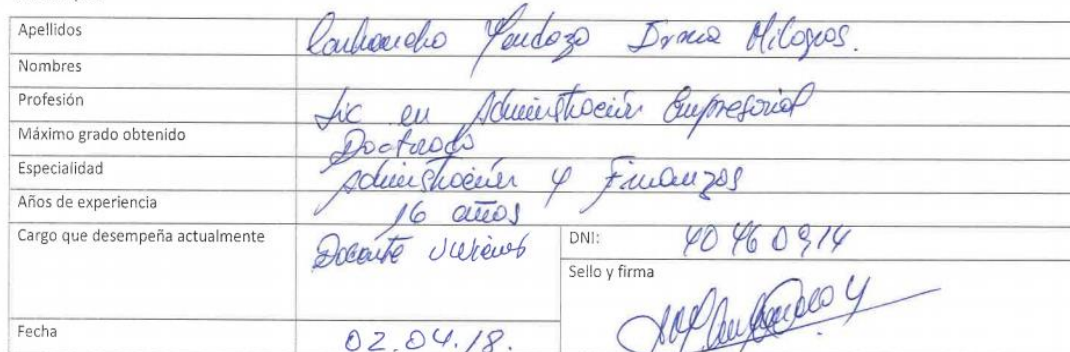 Apellidos
Carhuancho Mendoza Irma Milagros.
Nombres
Profesión
Lic en Administración Empresarial
Máximo grado obtenido
Doctorado
Especialidad
Administración y Finanzas
Años de experiencia
16 años
Cargo que desempeña actualmente
Docente
DNI: 40460914
Sello y firma
Fecha
02.04.18.